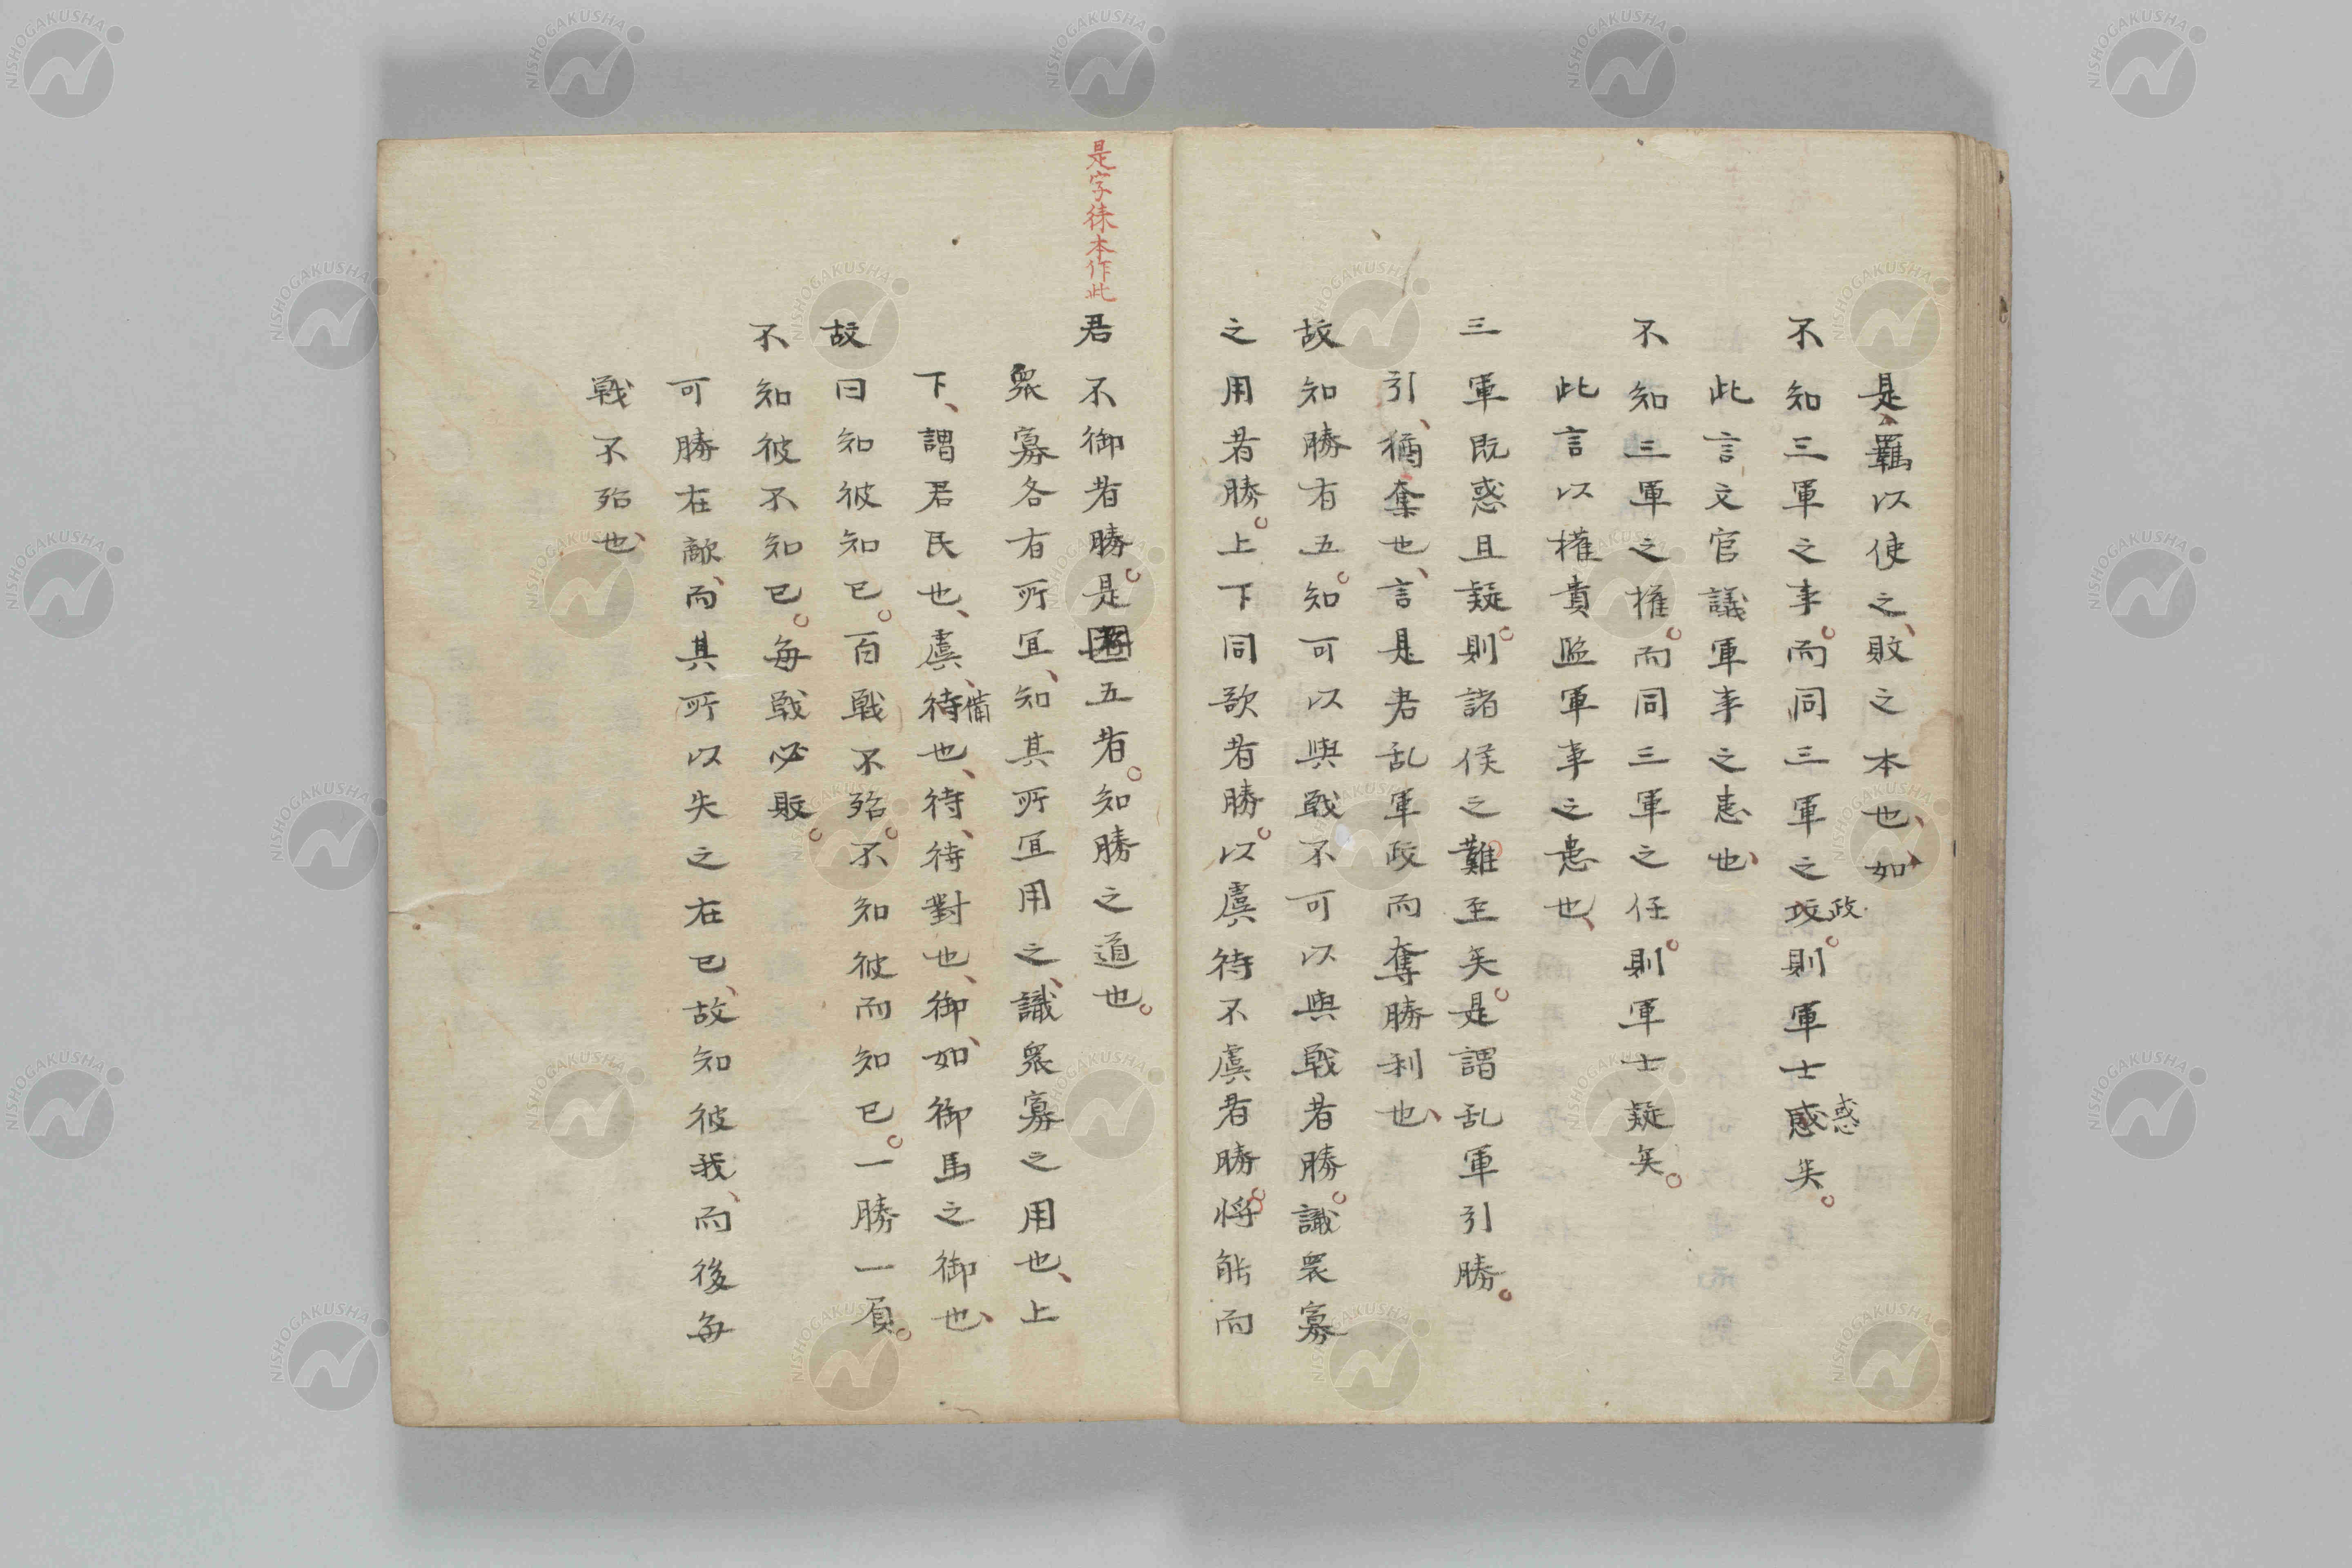 是羈以使之敗之本也如
不知三軍之事而同三軍之攻政則軍士感惑失
此言文官議軍事之恚也
不知三軍之権而同三軍之任則軍士疑矣
此言以権貴監軍事之恚也
三軍既惑且疑則諸侯之難至矣是謂乱軍引勝
引猶奪也言是君乱軍政而奪勝利也
故知勝有五知可以與戦不可以與戦者勝識衆寡
之用者勝上下同欲者勝以虞待不虞者勝将能而
是字徐本作此
君不御者勝是五者知勝之道也
衆寡各有所宜知其所宜用之識衆寡之用也上
下謂君民也虞待備也待待對也御如御馬之御也
故曰知彼知已百戦不殆不知彼而知已一勝一負
不知彼不知已每戦必敗
可勝在敵而其所以失之在已故知彼我而後每
戦不殆也
NISHOGAKUSHA